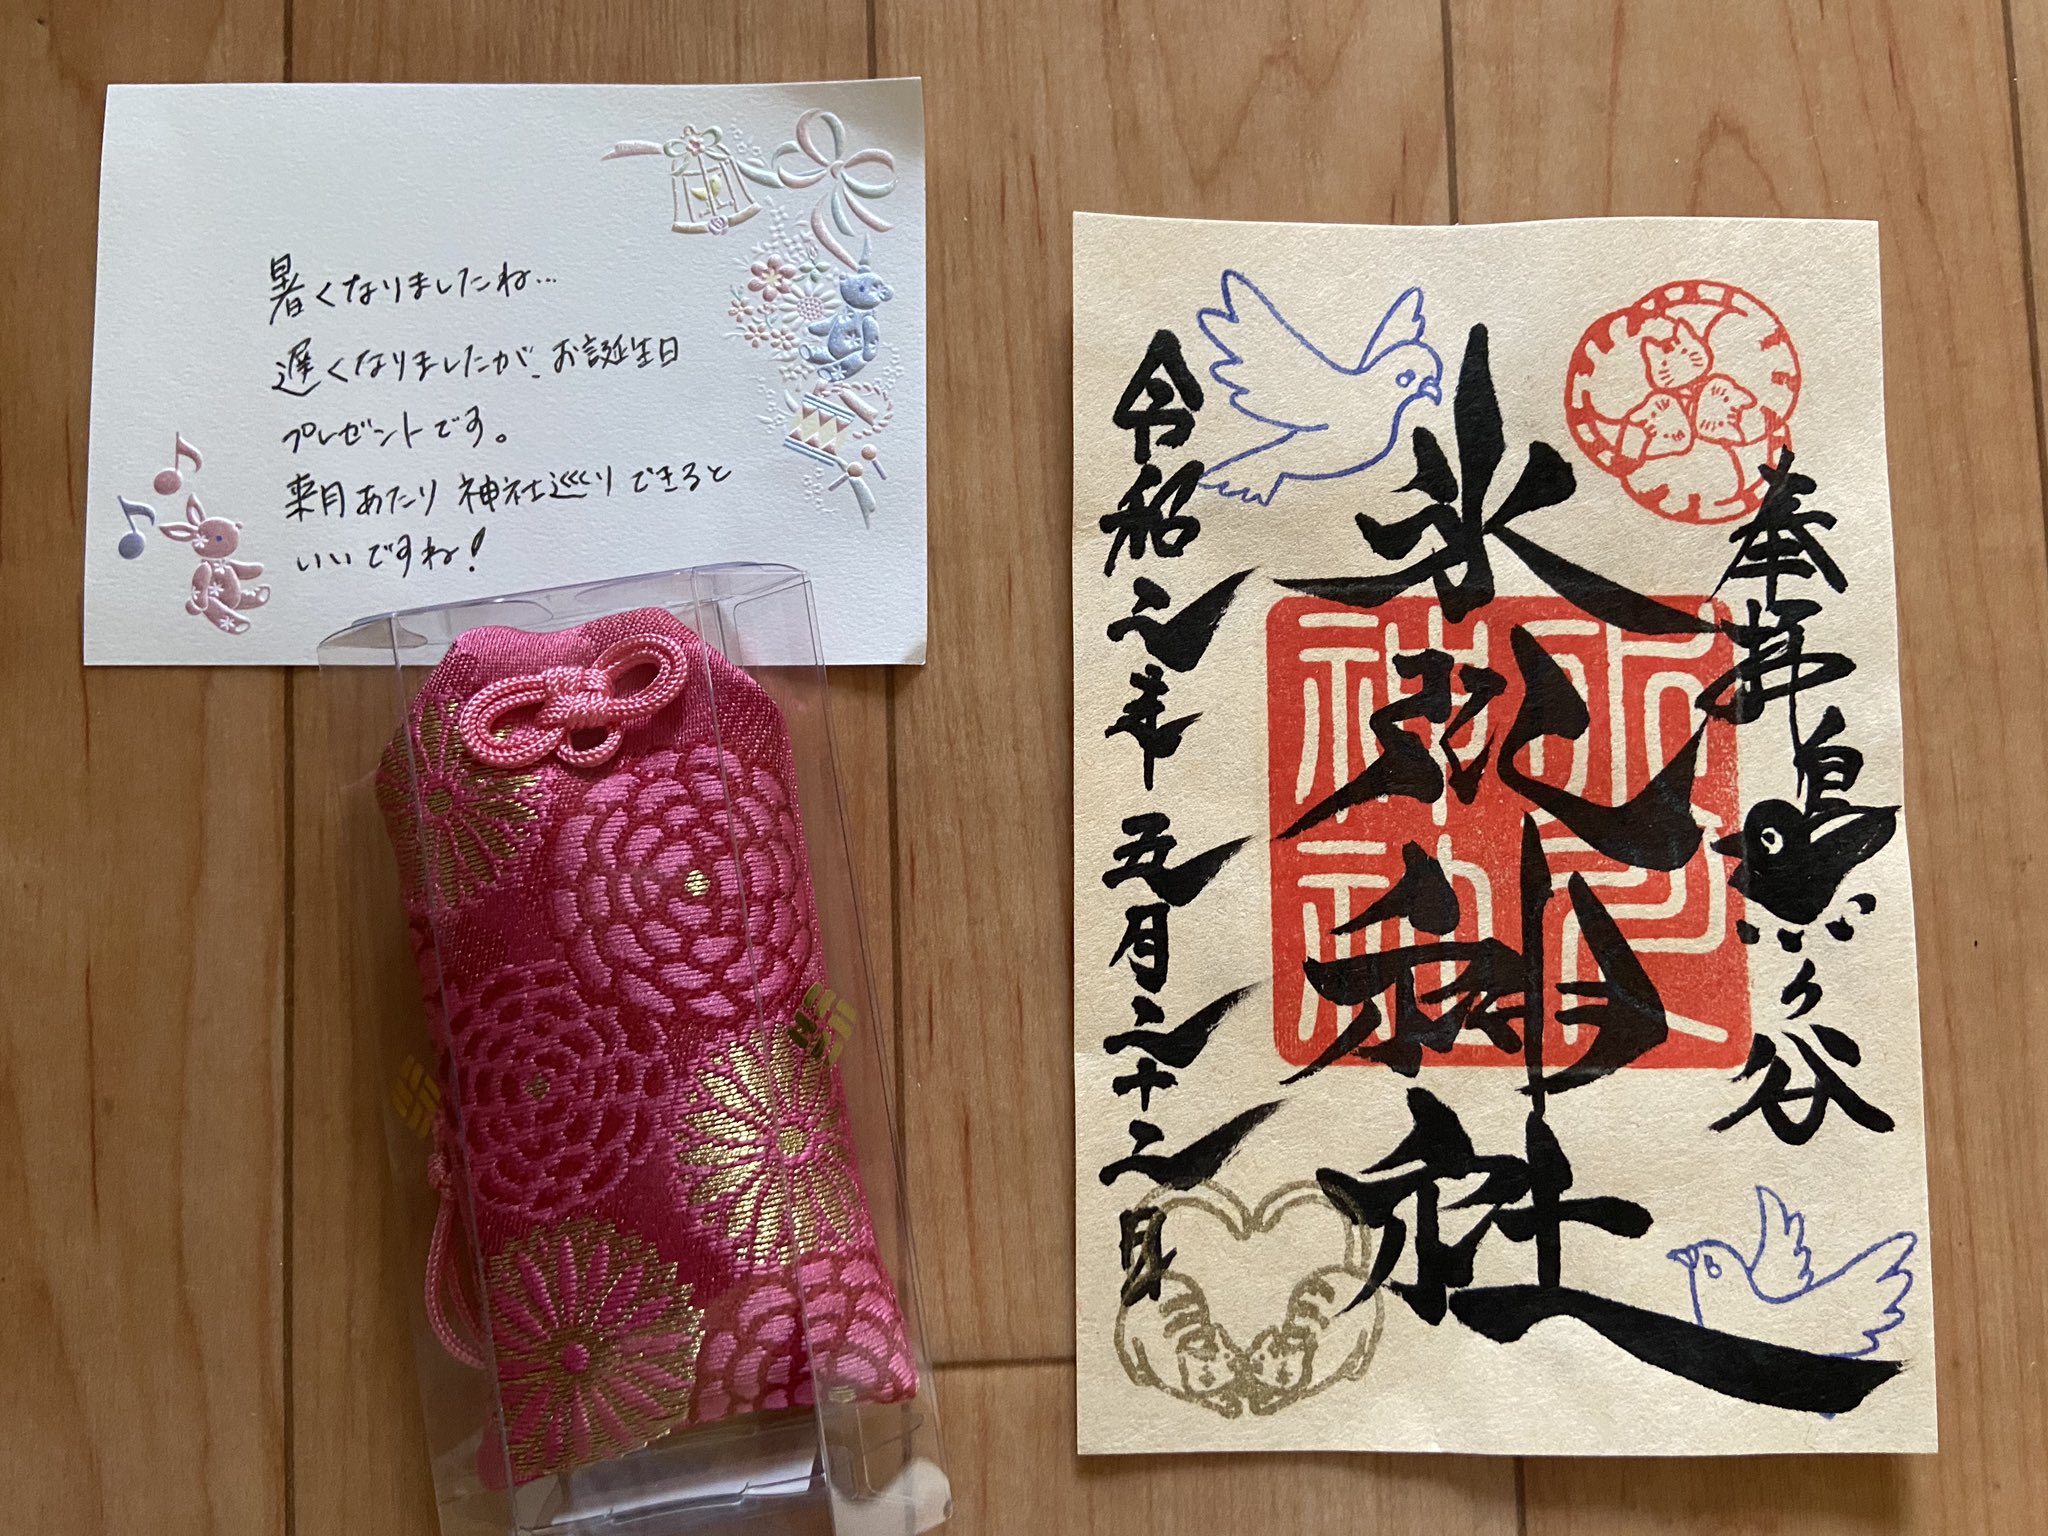 暑くなりましたね…
遅くなりましたが、お誕生日
プレゼントです。
来月あたり 神社巡りできると
いいですね!
奉拝 鳩ヶ谷
氷川神社
令和二年五月二十二日